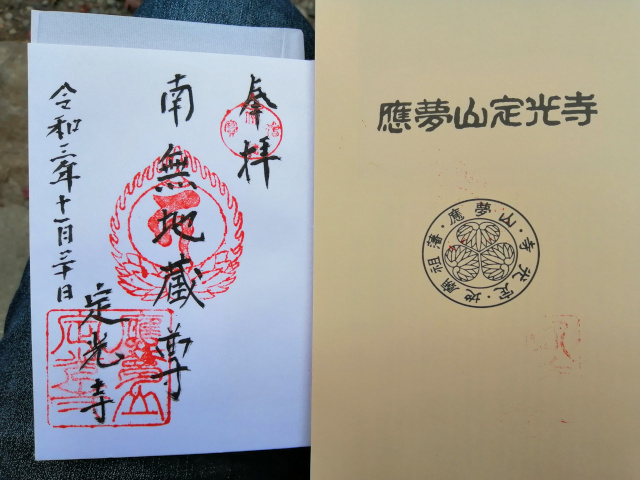 奉拝
南無地蔵尊
令和三年十一月三十日
定光寺
應夢山
定光寺
應夢山定光寺
應夢山
藩祖廟地・定光寺